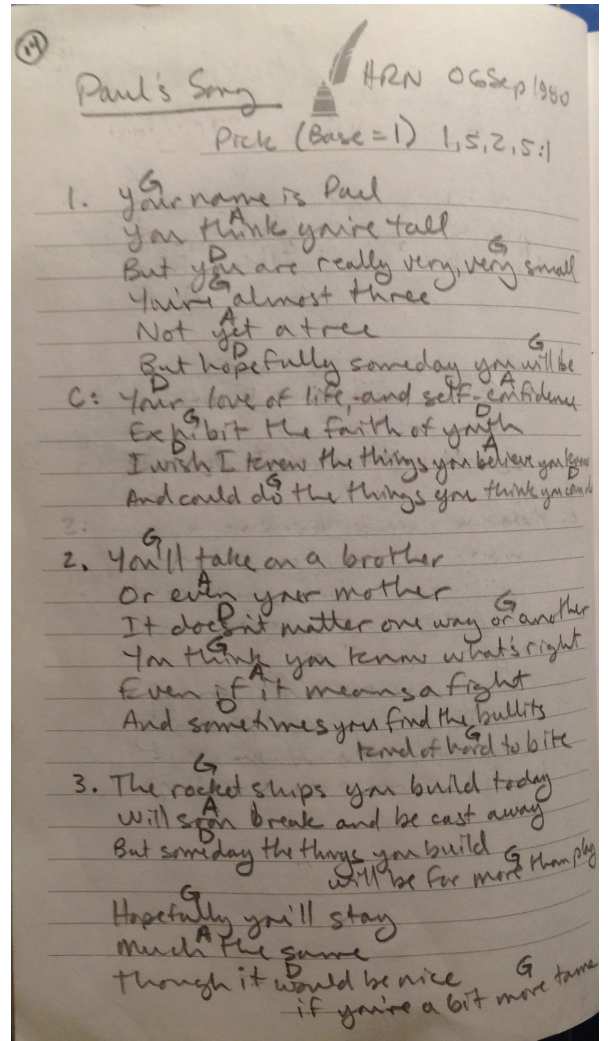 14
Paul's Song
HRN 06Sep1980
Pick (Base=1) 1,5,2,5:1
G
1. Your name is Paul
A
You think you're tall
D G
But you are really very, very small
G
You're almost three
A
Not yet a tree
D G
But hopefully someday you will be
D A
C: Your love of life, and self-confidence
G D
Exhibit the faith of youth
D A
I wish I knew the things you believe you know
G D
And could do the things you think you can do
2:
G
2. You'll take on a brother
A
Or even your mother
D G
It doesn't matter one way or another
G
You think you know what's right
A
Even if it means a fight
D
And sometimes you find the bullits
G
kind of hard to bite
G
3. The rocket ships you build today
A
Will soon break and be cast away
D
But someday the things you build
G
will be far more than play
G
Hopefully you'll stay
A
Much the same
D
Though it would be nice
G
if you're a bit more tame